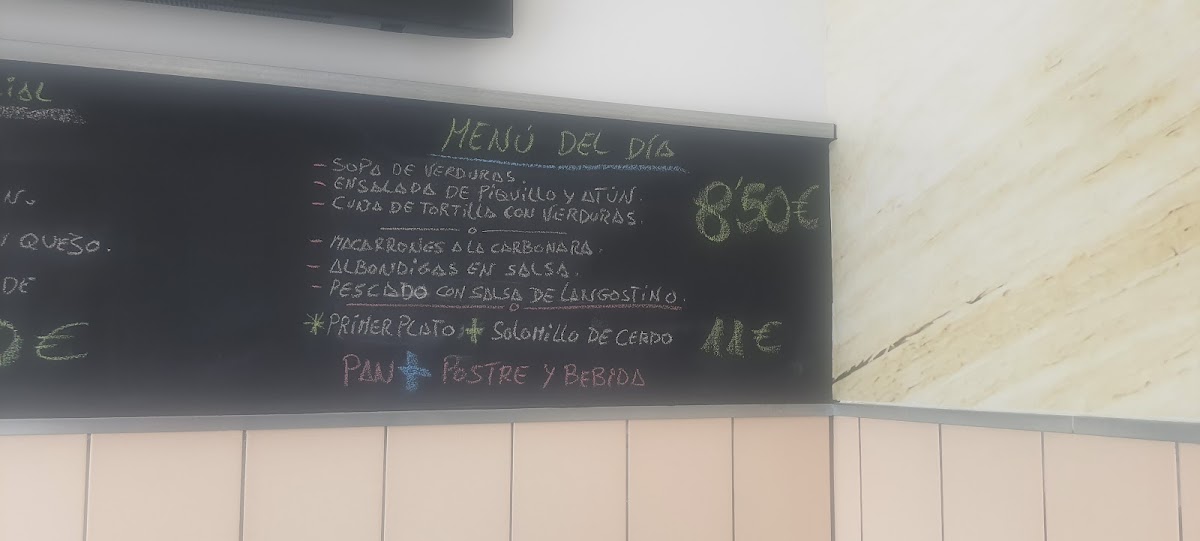 MENÚ DEL DÍA
- SOPA DE VERDURAS.
- ENSALADA DE PIQUILLO Y ATÚN.
- CUÑA DE TORTILLA CON VERDURAS.
8'50€
- MACARRONES A LA CARBONARA.
- ALBONDIGAS EN SALSA.
- PESCADO CON SALSA DE LANGOSTINO.
* PRIMER PLATO, + SOLOMILLO DE CERDO 11€
PAN + POSTRE Y BEBIDA
QUESO.
DE
€